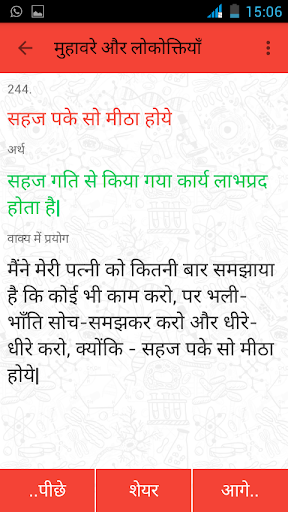 15:06
मुहावरे और लोकोक्तियाँ
244.
सहज पके सो मीठा होये
अर्थ
सहज गति से किया गया कार्य लाभप्रद
होता है|
वाक्य में प्रयोग
मैंने मेरी पत्नी को कितनी बार समझाया
है कि कोई भी काम करो, पर भली-
भाँति सोच-समझकर करो और धीरे-
धीरे करो, क्योंकि - सहज पके सो मीठा
होये|
..पीछे
शेयर
आगे..